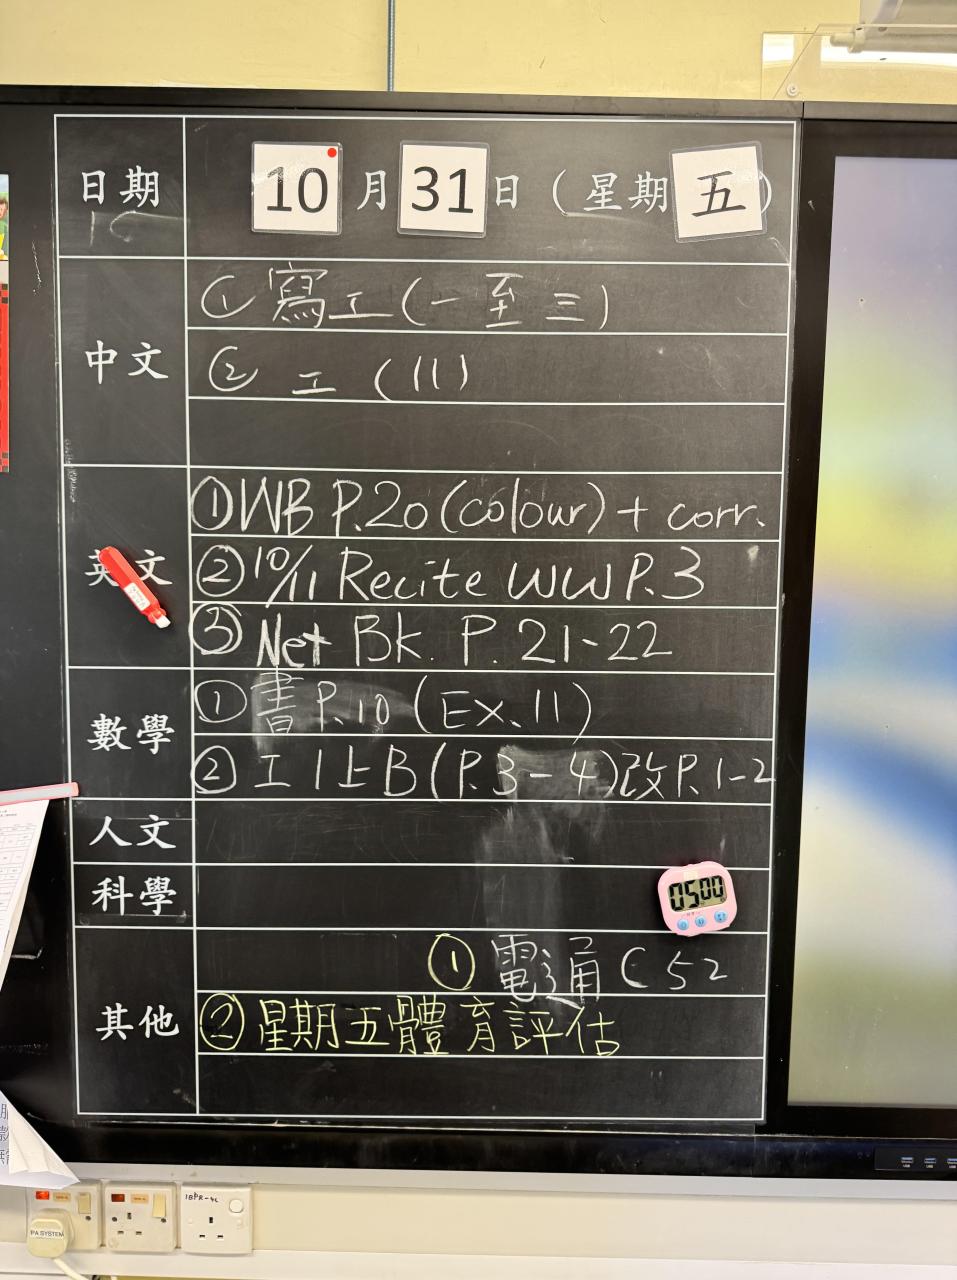 日期 10月31日(星期五)
中文
①寫工(一至三)
②工(11)
英文
①WB P.20(colour)+ corr.
②10/11 Recite WW P.3
③Net Bk. P. 21-22
數學
①書P.10(Ex.11)
②工1上B(P.3-4)改P.1-2
人文
科學
05 00
其他
①電通C52
②星期五體育評估
PA SYSTEM
1BPR-4L
USB USB USB